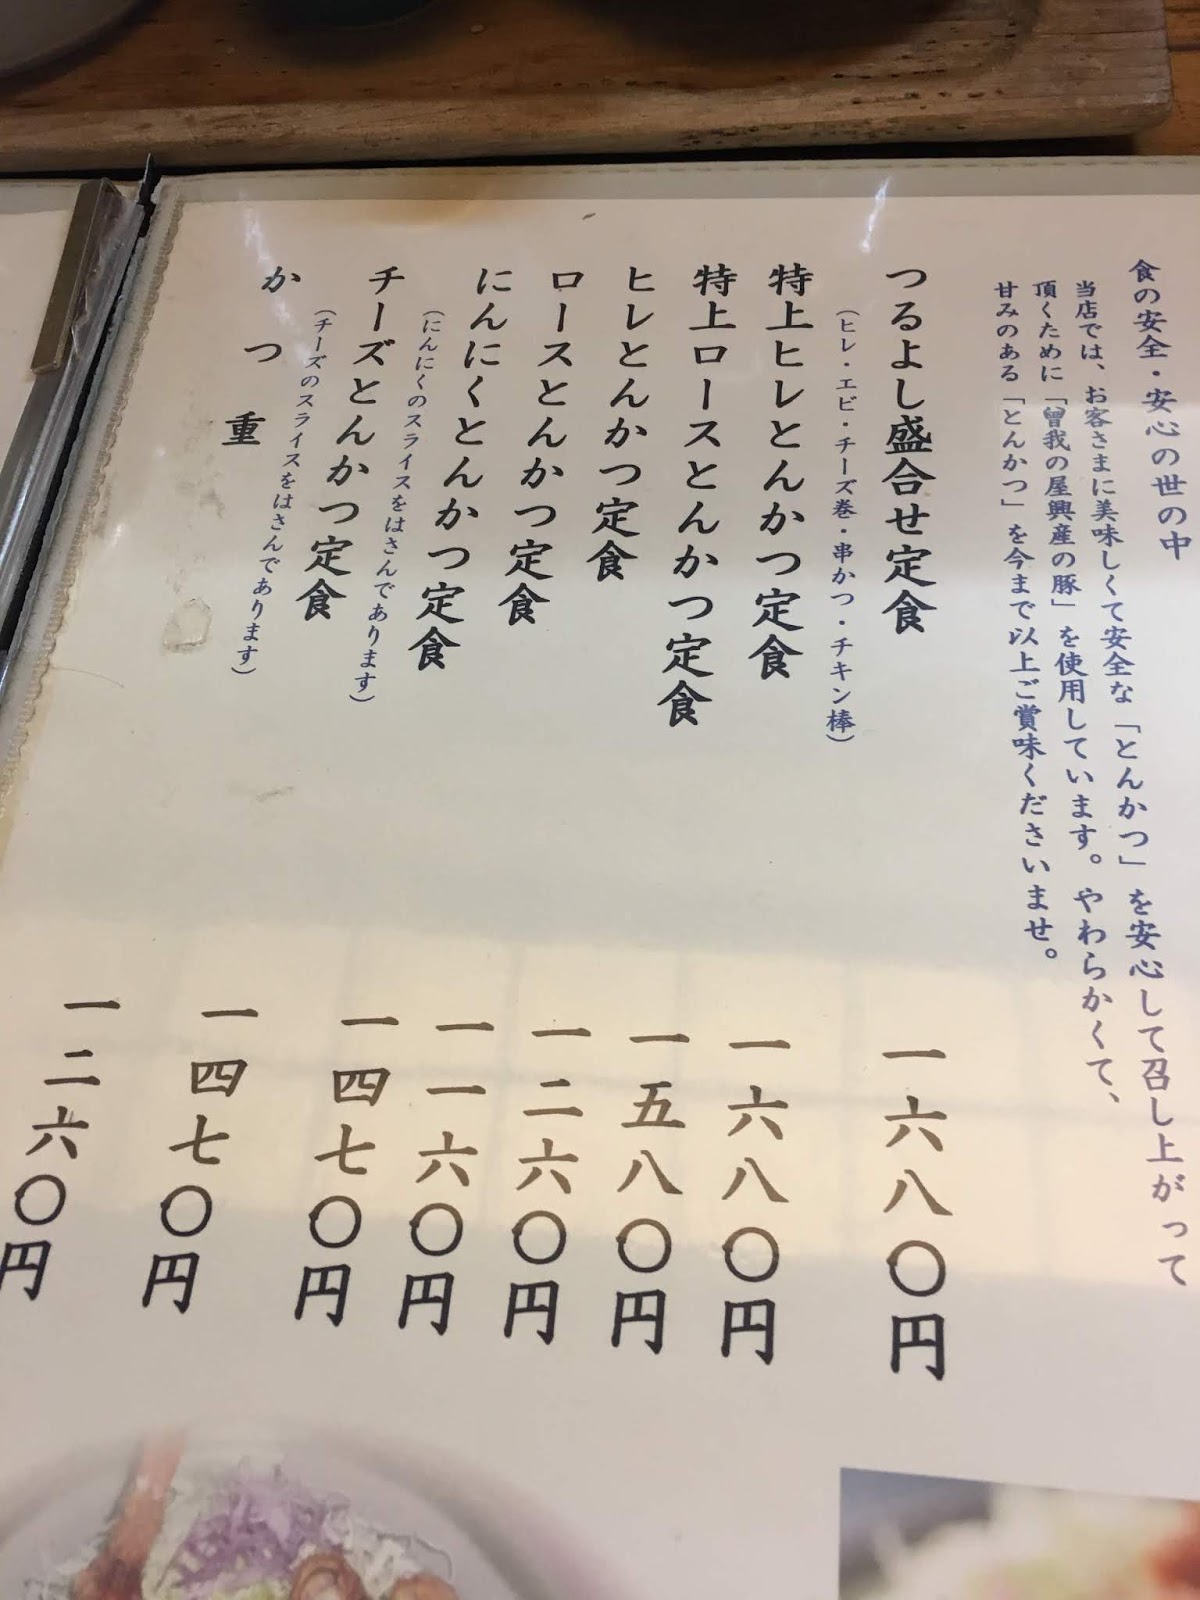 食の安全・安心の世の中
当店では、お客さまに美味しくて安全な「とんかつ」を安心して召し上がって
頂くために「曾我の屋興産の豚」を使用しています。やわらかくて、
甘みのある「とんかつ」を今まで以上ご賞味くださいませ。
つるよし盛合せ定食 一六八〇円
(ヒレ・エビ・チーズ巻・串かつ・チキン棒)
特上ヒレとんかつ定食 一六八〇円
特上ロースとんかつ定食 一五八〇円
ヒレとんかつ定食 一二六〇円
ロースとんかつ定食 一一六〇円
にんにくとんかつ定食 一四七〇円
(にんにくのスライスをはさんであります)
チーズとんかつ定食 一四七〇円
(チーズのスライスをはさんであります)
かつ重 一二六〇円